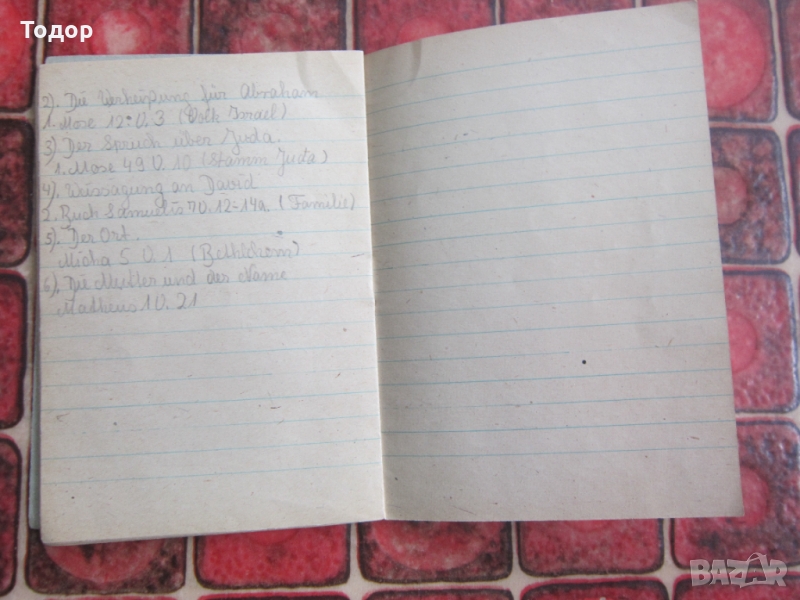 Todor
2). Die Verheißung für Abraham
1. Mose 12. V. 3 (Volk Israel)
3) Der Spruch über Juda.
1. Mose 49 V. 10 (Stamm Juda)
4). Weissagung an David
2. Buch Samuelis 7 V. 12-14a. (Familie)
5). Der Ort.
Micha 5 V. 1 (Bethlehem)
6). Die Mutter und der Name
Matheus 1 V. 21
BAZAR.bg